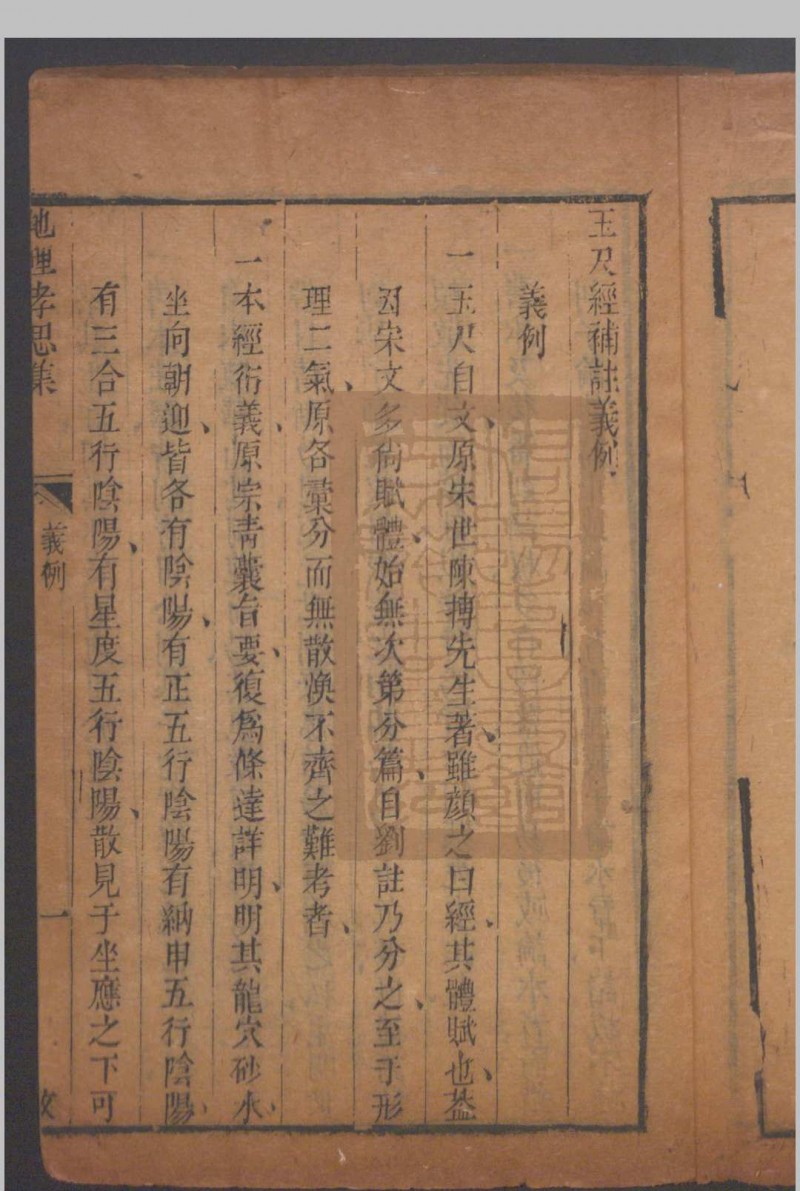 玉尺經補註義例
義例
一玉尺自文、原宋世陳摶先生著、雖顔之曰經、其體賦也、葢
因宋文多尚賦體、始無次第分篇、自劉註乃分之、至于形
理二氣、原各彚分而無散渙不齊之難考者、
一本經衍義、原宗靑囊旨要、復爲條達詳明、明其龍穴砂水、
坐向朝迎、皆各有陰陽、有正五行陰陽有納甲五行陰陽、
有三合五行陰陽、有星度五行陰陽、散見于坐應之下可
地理孝思集
義例
一